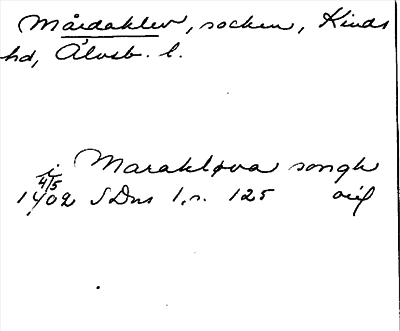 Mårdaklev, socken, Kinds
hd, Älvsb. l.
i Marakløva songh
4/5
1402 SDns 1, s. 125 orig